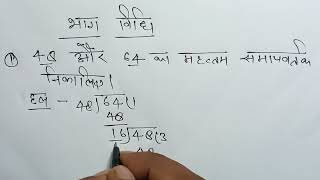 भाग विधि
① 48 और 64 का महत्तम समापवर्तक
निकालिए।
हल - 48)64(1
48
16)48(3
48